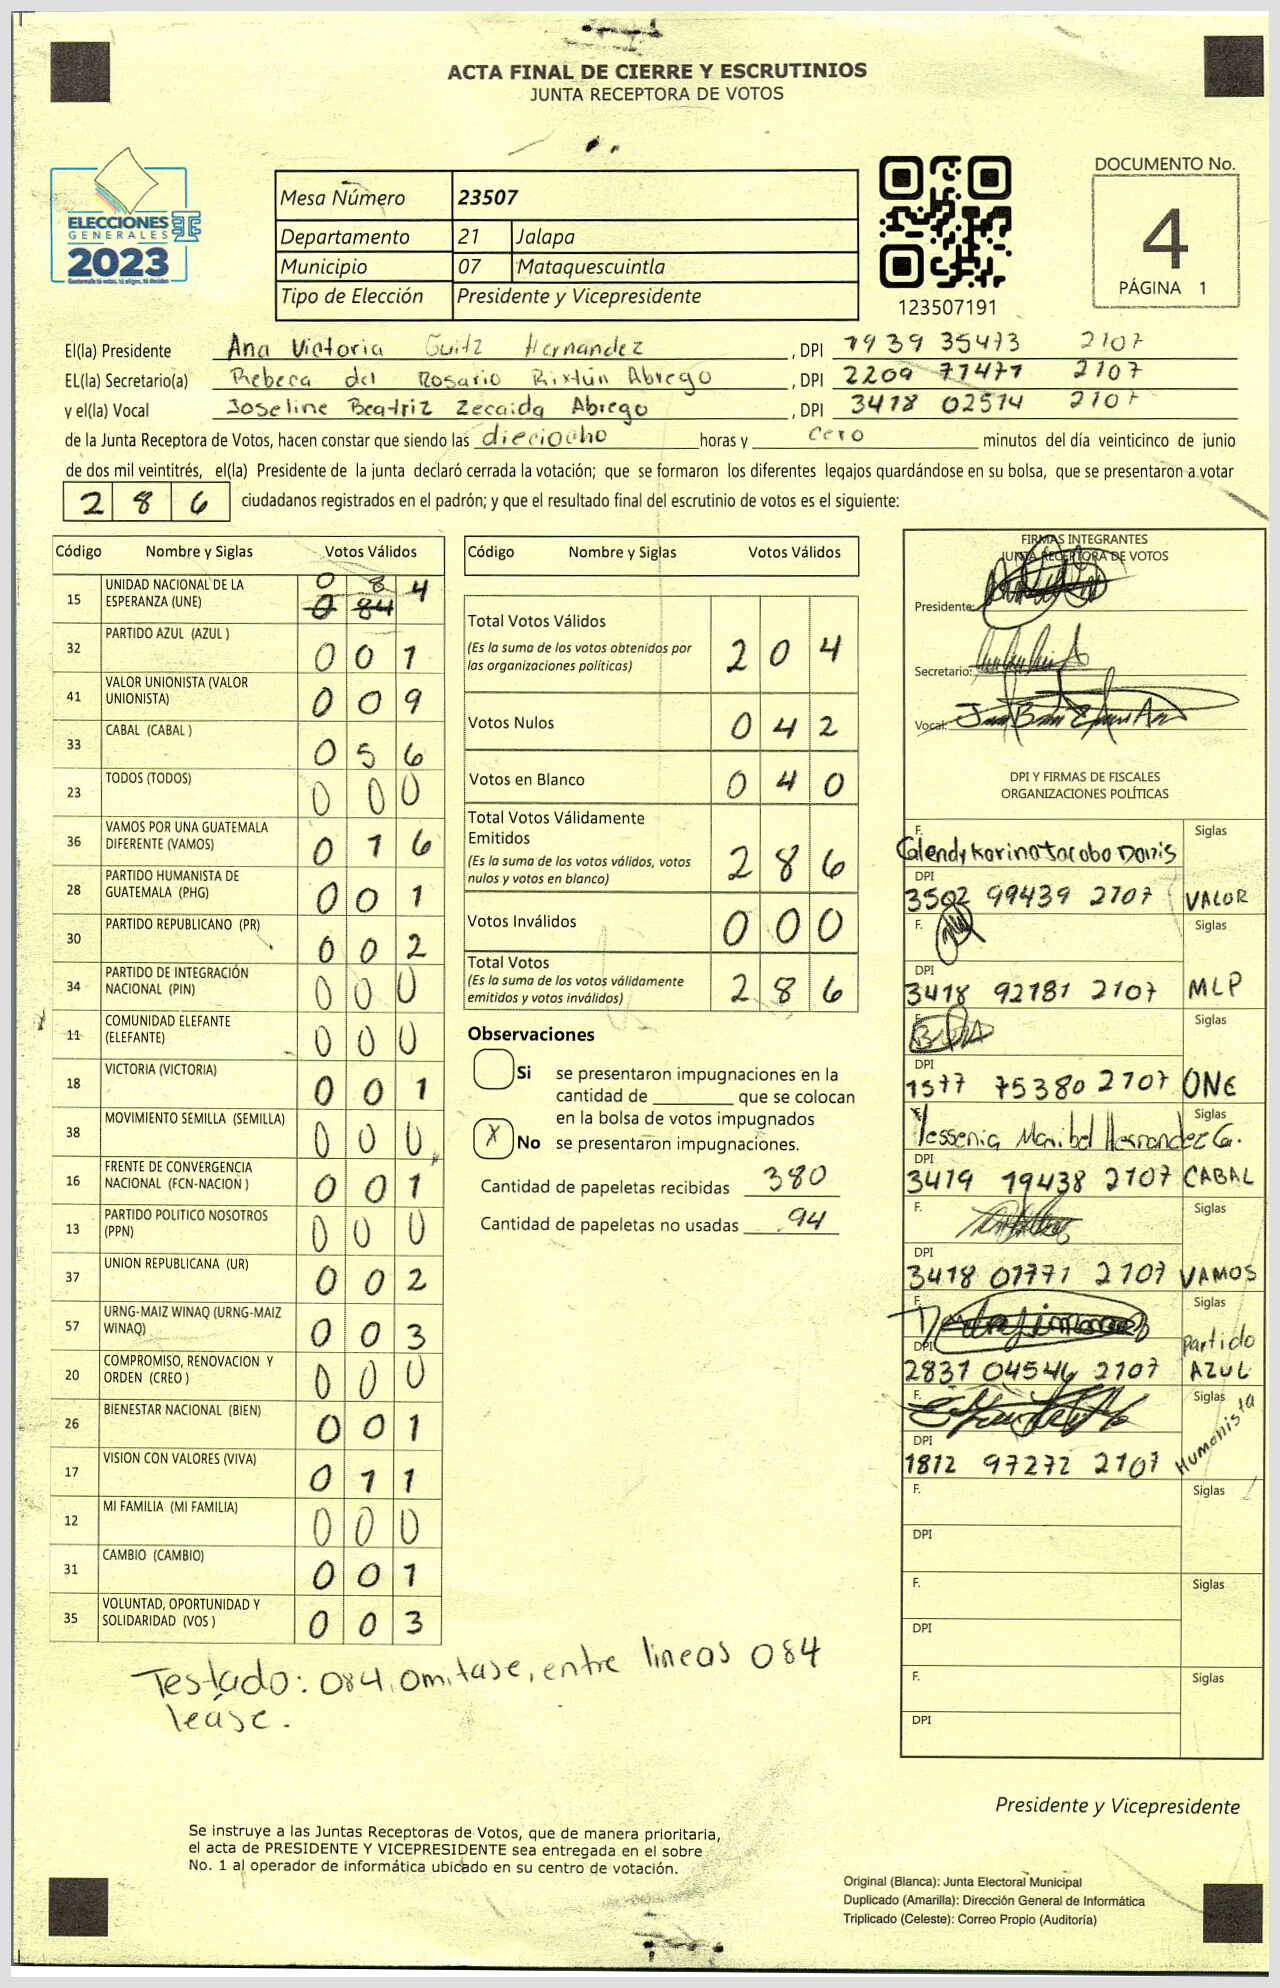 ACTA FINAL DE CIERRE Y ESCRUTINIOS
JUNTA RECEPTORA DE VOTOS
ELECCIONES
GENERALES
2023
Mesa Número 23507
Departamento 21 Jalapa
Municipio 07 Mataquescuintla
Tipo de Elección Presidente y Vicepresidente
123507191
DOCUMENTO No.
4
PÁGINA 1
El(la) Presidente Ana Victoria Guitz Hernandez , DPI 1939 35473 2107
EL(la) Secretario(a) Rebeca del Rosario Rixtún Abrego , DPI 2209 77477 2107
y el(la) Vocal Joseline Beatriz Zecaida Abrego , DPI 3418 02514 2107
de la Junta Receptora de Votos, hacen constar que siendo las dieciocho horas y cero minutos del día veinticinco de junio
de dos mil veintitrés, el(la) Presidente de la junta declaró cerrada la votación; que se formaron los diferentes legajos quardándose en su bolsa, que se presentaron a votar
286 ciudadanos registrados en el padrón; y que el resultado final del escrutinio de votos es el siguiente:
Código Nombre y Siglas Votos Válidos
15 UNIDAD NACIONAL DE LA ESPERANZA (UNE) 0 8 4
0 84
32 PARTIDO AZUL (AZUL ) 0 0 1
41 VALOR UNIONISTA (VALOR UNIONISTA) 0 0 9
33 CABAL (CABAL ) 0 5 6
23 TODOS (TODOS) 0 0 0
36 VAMOS POR UNA GUATEMALA DIFERENTE (VAMOS) 0 1 6
28 PARTIDO HUMANISTA DE GUATEMALA (PHG) 0 0 1
30 PARTIDO REPUBLICANO (PR) 0 0 2
34 PARTIDO DE INTEGRACIÓN NACIONAL (PIN) 0 0 0
11 COMUNIDAD ELEFANTE (ELEFANTE) 0 0 0
18 VICTORIA (VICTORIA) 0 0 1
38 MOVIMIENTO SEMILLA (SEMILLA) 0 0 0
16 FRENTE DE CONVERGENCIA NACIONAL (FCN-NACION ) 0 0 1
13 PARTIDO POLITICO NOSOTROS (PPN) 0 0 0
37 UNION REPUBLICANA (UR) 0 0 2
57 URNG-MAIZ WINAQ (URNG-MAIZ WINAQ) 0 0 3
20 COMPROMISO, RENOVACION Y ORDEN (CREO ) 0 0 0
26 BIENESTAR NACIONAL (BIEN) 0 0 1
17 VISION CON VALORES (VIVA) 0 1 1
12 MI FAMILIA (MI FAMILIA) 0 0 0
31 CAMBIO (CAMBIO) 0 0 1
35 VOLUNTAD, OPORTUNIDAD Y SOLIDARIDAD (VOS ) 0 0 3
Testado: 084. omitase, entre lineas 084
leáse.
Código Nombre y Siglas Votos Válidos
Total Votos Válidos 2 0 4
(Es la suma de los votos obtenidos por
las organizaciones políticas)
Votos Nulos 0 4 2
Votos en Blanco 0 4 0
Total Votos Válidamente
Emitidos 2 8 6
(Es la suma de los votos válidos, votos
nulos y votos en blanco)
Votos Inválidos 0 0 0
Total Votos 2 8 6
(Es la suma de los votos válidamente
emitidos y votos inválidos)
Observaciones
Si se presentaron impugnaciones en la
cantidad de ________ que se colocan
en la bolsa de votos impugnados
X No se presentaron impugnaciones.
Cantidad de papeletas recibidas 380
Cantidad de papeletas no usadas 94
FIRMAS INTEGRANTES
JUNTA RECEPTORA DE VOTOS
Presidente:
Secretario:
Vocal:
DPI Y FIRMAS DE FISCALES
ORGANIZACIONES POLÍTICAS
F. Glendy Karina Jacobo Donis Siglas
DPI
3502 99439 2107 VALOR
F. Siglas
DPI
3418 92181 2107 MLP
F. Siglas
DPI
1577 75380 2107 ONE
F. Yessenia Maribel Hernandez G. Siglas
DPI
3419 19438 2107 CABAL
F. Siglas
DPI
3418 01771 2107 VAMOS
F. Siglas
DPI Partido
2837 04546 2107 AZUL
F. Siglas
DPI
1812 97272 2107 Humanista
F. Siglas
DPI
F. Siglas
DPI
F. Siglas
DPI
Presidente y Vicepresidente
Se instruye a las Juntas Receptoras de Votos, que de manera prioritaria,
el acta de PRESIDENTE Y VICEPRESIDENTE sea entregada en el sobre
No. 1 al operador de informática ubicado en su centro de votación.
Original (Blanca): Junta Electoral Municipal
Duplicado (Amarilla): Dirección General de Informática
Triplicado (Celeste): Correo Propio (Auditoría)